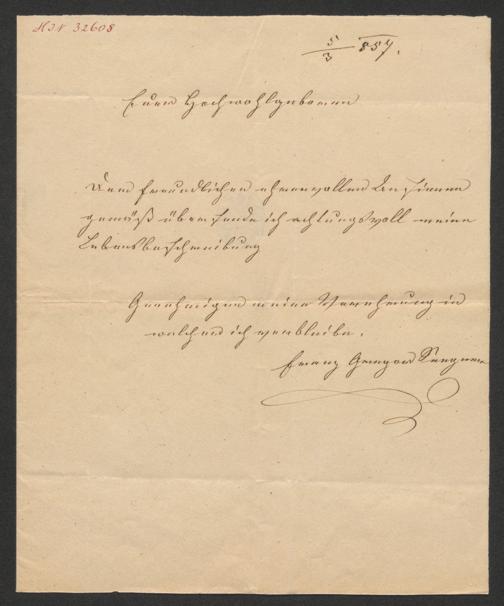 HIN 32608
5/3 857.
Euer Hochwohlgeboren
Dem freundlichen ehrenvollen Ansinnen
gemäß übersende ich achtungsvoll meine
Lebensbeschreibung
Genehmigen meine Verehrung in
welcher ich verbleibe.
Franz Gregor